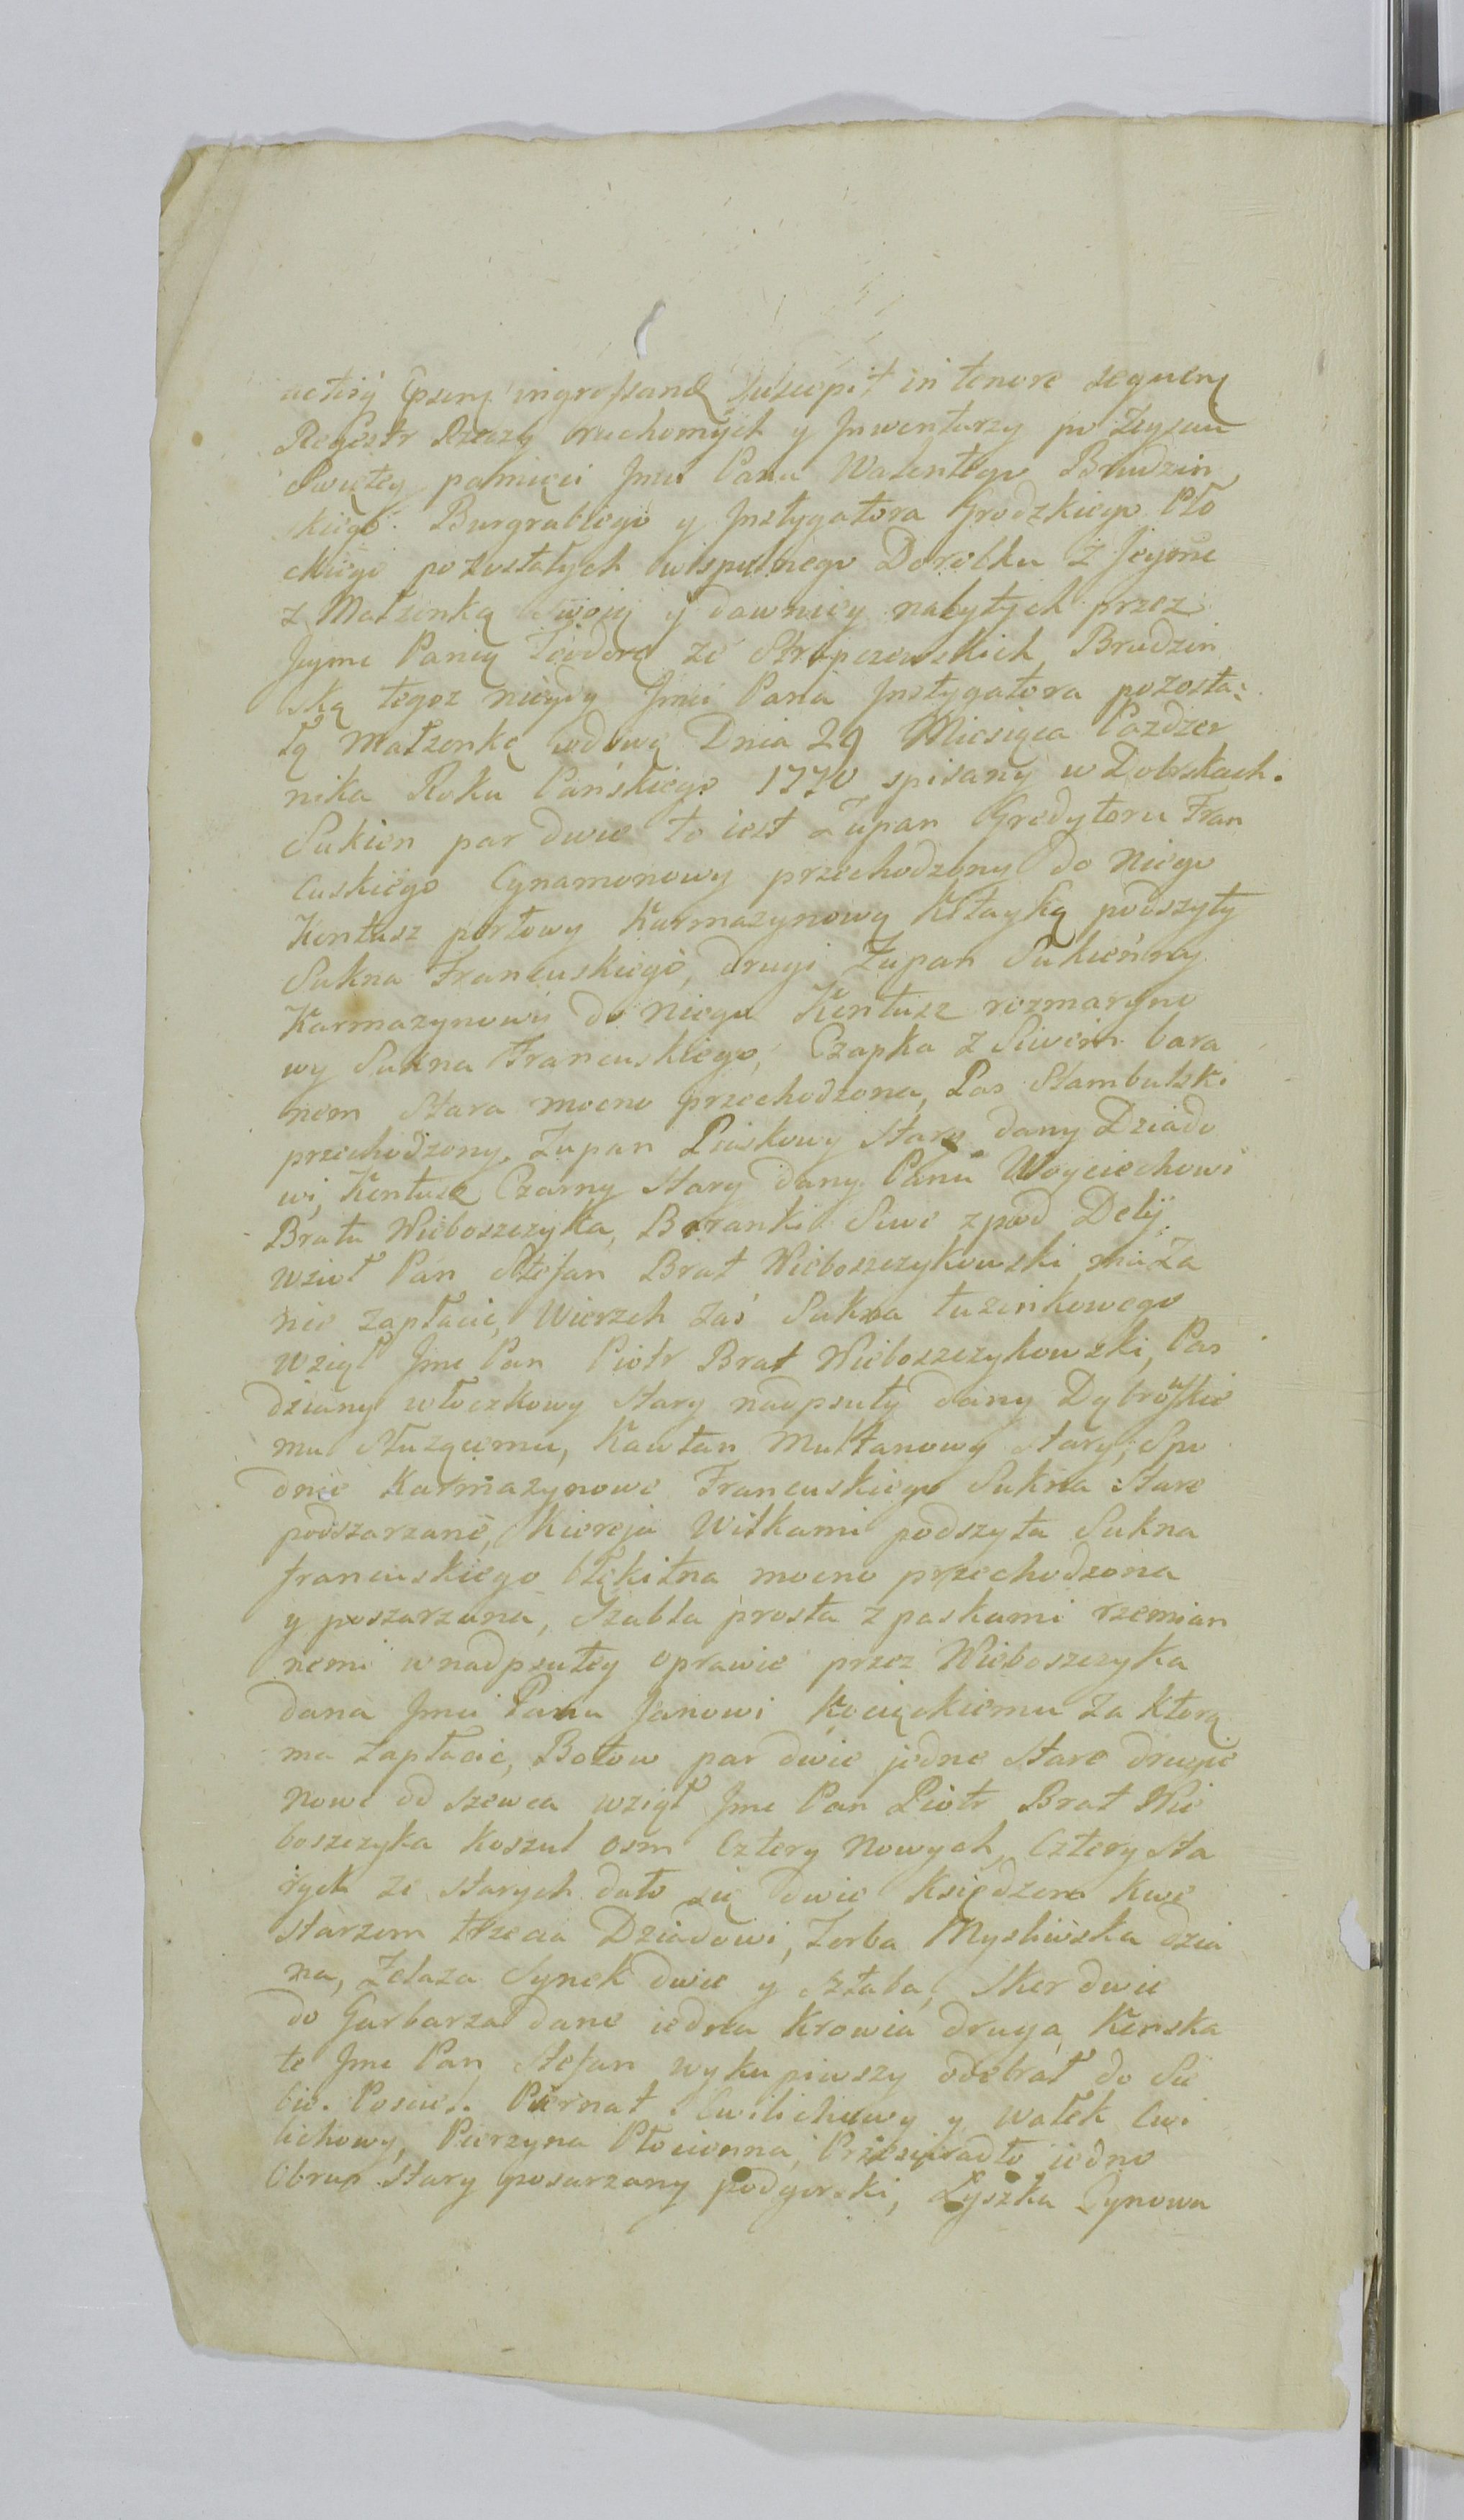 actisq̨ ingrossand suscepit in tenore sequenț
Regestr Rzeczy ruchomych y Inwentarzy po zeyściu
Swiętey pamięci Jmci Pana Walentego Brudzin
skiego Burgrabiego y Instygatora Grodzkiego Pło
ckiego pozostałych wspulnego Dorobku z Jeymć
z Małzonką swoią y dawniey nabytych przez
Jeymć Panią Teodorę ze Strupczewskich Brudzin
ską tegoz niegdy Jmci Pana Instygatora pozosta:
łą małzonkę wdowę Dnia 29 Miesiąca Pazdzer
nika Roku Pańskiego 1770 spisany w Dobrskach.
Sukien par dwie to iest Zupan Gredytoru Fran
cuskiego Cynamonowy przechodzony do niego
Kontusz perłowy Karmazynową Kitayką podszyty
Sukna Francuskiego, drugi Zupan Sukienny
Karmazynowy do niego Kontusz rozmaryno
wy Sukna Francuskiego, Czapka z Siwem bara
nem Stara mocno przechodzona, Pas Stambulski
przechodzony, Zupan Piaskowy Stary dany Dziado
wi, Kontusz Czarny Stary dany Panu Woyciechowi
Bratu Nieboszczyka, Baranki Siwe z pod Delij
wzioł Pan Stefan Brat Nieboszczykowski ma Za
nie zapłacić, Wierzch zaś Sukna łuzinkowego
wziął Jmć Pan Piotr Brat Nieboszczykowski, Pas
dziany włoczkowy Stary nadpsuty dany Dąbrowskie
mu Słuzącemu, Kawtan Multanowy Stary, Spo
dnie Karmazynowe Francuskiego Sukna Stare
podszarzane, Kiereja Wilkami podszyta Sukna
francuskiego błękitna mocno przechodzona
y poszarzana, Szabla prosta z paskami rzemian
nemi w nadpsutey oprawie przez Nieboszczyka
dana Jmci Panu Janowi Kocięckiemu za ktorą
ma zapłacić, Botow par dwie jedne Stare drugie
nowe od szewca wziął Jmć Pan Piotr Brat Nie
boszczyka Koszul osm Cztery nowych, Cztery Sta
rych ze starych dało się dwie Księdzom Kwe
starzom trzecia Dziadowi, Torba Mysliwska dzia
na, Zelaza Synek dwie y sztaba, Skor dwie
do Garbarza dane iedna Krowia druga Konska
te Jmć Pan Stefan wykupiwszy odebrał do Sie
bie. Posciel. Piernat Cwilichowy y Wałek Cwi
lichowy, Pierzyna Płocienna, Przescieradło iedno
Obrus Stary posarzany podgorski, Łyszka Cynowa